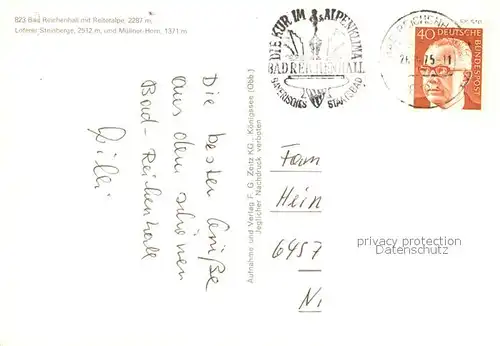 823 Bad Reichenhall mit Reiteralpe, 2287 m,
Loferer Steinberge, 2512 m, und Müllner-Horn, 1371 m
DIE KUR IM ALPENKLIMA
BAD REICHENHALL
BAYERISCHES STAATSBAD
BAD REICHENH
75-11
40
DEUTSCHE
BUNDESPOST
Die besten Grüße
aus dem schönen
Bad-Reichenhall
Aufnahme und Verlag F. G. Zeitz KG., Königssee (Obb.)
Jeglicher Nachdruck verboten
Fam
Hein
6457
privacy protection
Datenschutz